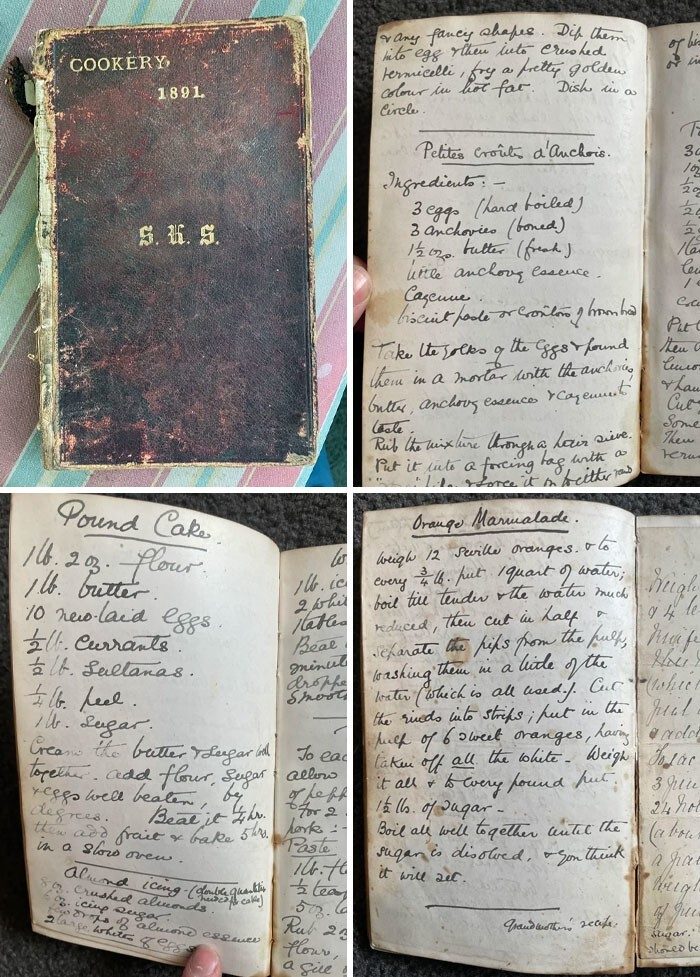 COOKERY,
1891.
S. K. S.
& any fancy shapes. Dip them
into egg & then into crushed
vermicelli, fry a pretty golden
colour in hot fat. Dish in a
circle.
Petites Croûtes d'Anchois.
Ingredients: -
3 eggs (hard boiled)
3 anchovies (boned)
1½ ozs. butter (fresh)
little anchovy essence.
Cayenne.
biscuit paste or croûtons of brown bread
Take the yolks of the eggs & pound
them in a mortar with the anchovies,
butter, anchovy essence & cayenne to
taste.
Rub the mixture through a hair sieve.
Put it into a forcing bag with a
& force it in
or in
Put
then
Cut
Some
Them
Pound Cake.
1 lb. 2 oz. flour.
1 lb. butter.
10 new-laid eggs.
½ lb. Currants.
½ lb. Sultanas.
¼ lb. peel.
1 lb. Sugar.
Cream the butter & Sugar well
together. add flour, Sugar
& eggs well beaten, by
degrees. Beat it ¼ hr.
then add fruit & bake 5 hrs.
in a slow oven.
Almond icing - (double quantities
needed for cake)
oz. crushed almonds
oz. icing sugar.
drops of almond essence
2 large whites of eggs
1 lb.
2
Beat
To
allow
of
For 2
Paste
1 lb.
½
5 oz.
Rub 2
flour,
a gill
Orange Marmalade.
Weigh 12 Seville oranges. & to
every ¾ lb. put 1 quart of water;
boil till tender & the water much
reduced, then cut in half &
separate the pips from the pulp,
washing them in a little of the
water (which is all used.). Cut
the rinds into strips; put in the
pulp of 6 sweet oranges, having
taken off all the white. Weigh
it all & to every pound put
1½ lb. of sugar -
Boil all well together until the
sugar is disolved, & you think
it will set.
Grandmother's recipe.
& 4 lb
(whi
3
24
(abou
a
of
sugar.
should be